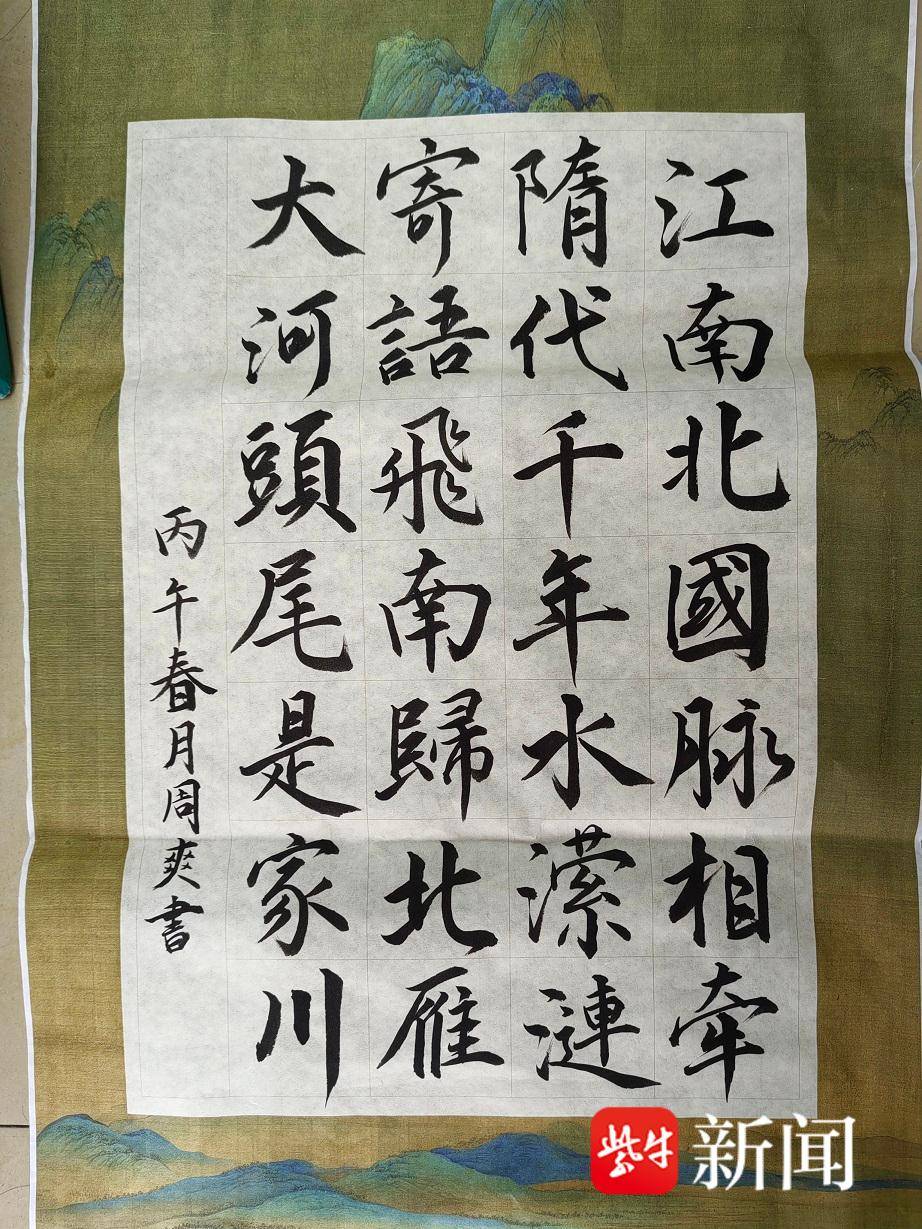 江南北國脉相牽
隋代千年水潆漣
寄語飛南歸北雁
大河頭尾是家川
丙午春月周爽書
紫牛新闻